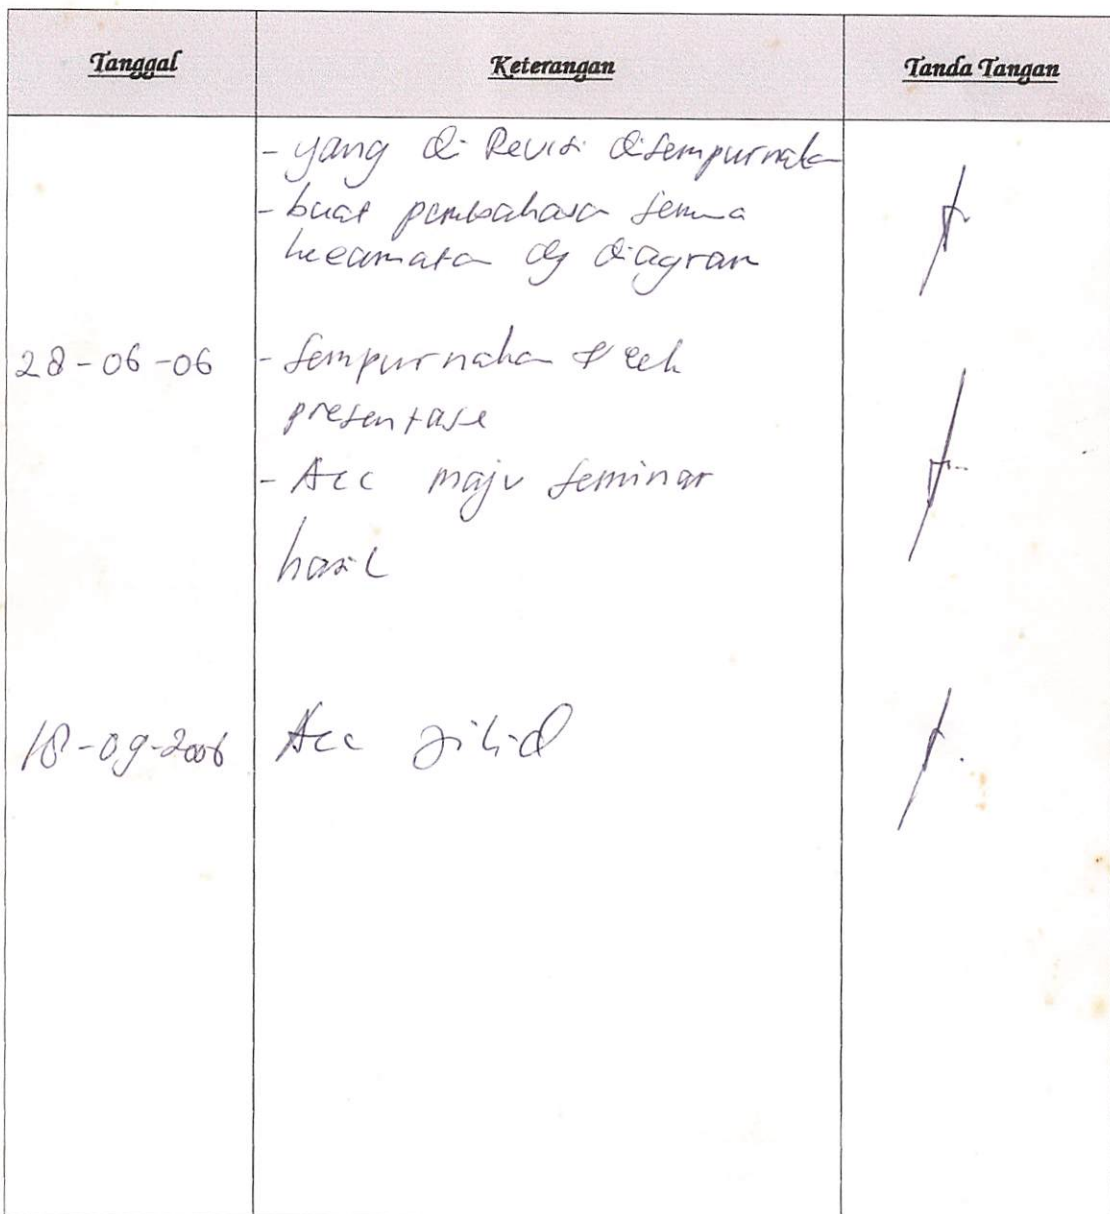 Tanggal Keterangan Tanda Tangan
- yang di Revisi disempurnaka
- buat pembahasa semua
kecamata dg diagram
28-06-06 - Sempurnaka & cek
presentase
- Acc maju seminar
hasil
18-09-2006 Acc jilid